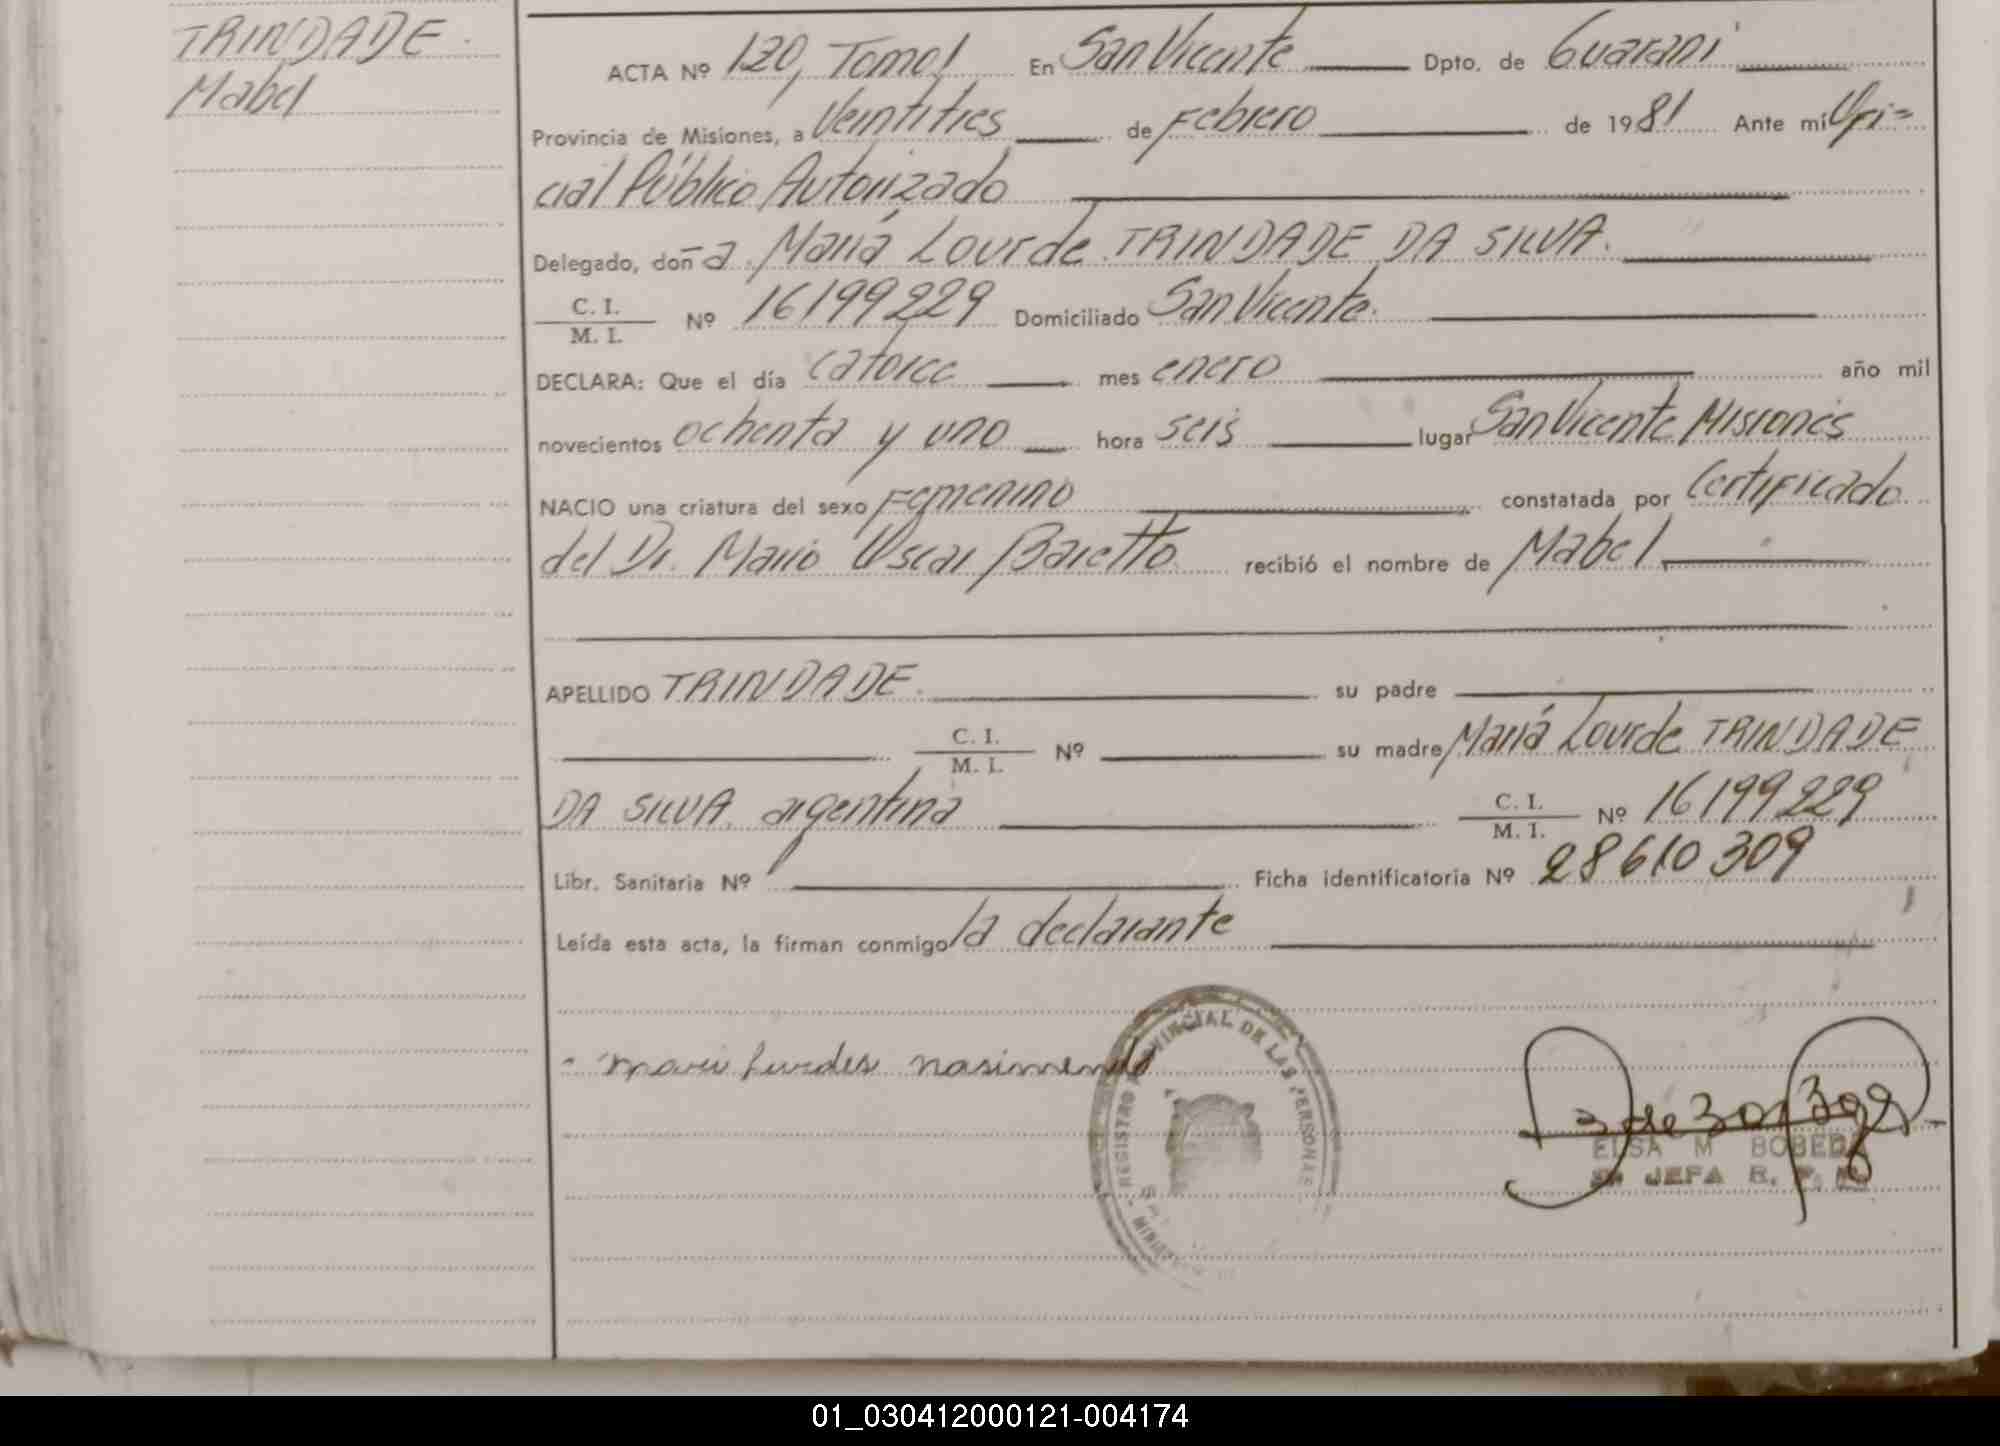 TRINDADE
Mabel
ACTA Nº 120, Tomo I En San Vicente Dpto. de Guaraní
Provincia de Misiones, a Veintitres de Febrero de 1981 Ante mí Ofi=
cial Público Autorizado
Delegado, doña María Lourde TRINDADE DA SILVA.
C. I.
M. I. Nº 16199229 Domiciliado San Vicente.
DECLARA: Que el día catorce mes enero año mil
novecientos ochenta y uno hora seis lugar San Vicente Misiones
NACIO una criatura del sexo Femenino constatada por Certificado
del Dr. Mario Oscar Baretto recibió el nombre de Mabel
APELLIDO TRINDADE. su padre
C. I.
M. I. Nº su madre María Lourde TRINDADE
DA SILVA. argentina C. I.
M. I. Nº 16199229
Libr. Sanitaria Nº Ficha identificatoria Nº 28610309
Leída esta acta, la firman conmigo la declarante
REGISTRO PROVINCIAL DE LAS PERSONAS
nasimendo
ELSA M BOBEDA
JEFA R. P.
01_030412000121-004174